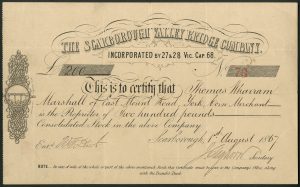 THE SCARBOROUGH VALLEY BRIDGE COMPANY.
INCORPORATED BY 27 & 28 VIC. CAP 68.
£ 200 No. 76
This is to certify that Thomas Wharram
Marshall of East Mound Road, York, Corn Merchant
is the Proprietor of Two hundred pounds
Consolidated Stock in the above Company.
Scarborough, 1st August 1867
Secretary
NOTE.— In case of sale of the whole or part of the above-mentioned Stock this Certificate must be given to the Company's Office along
with the Transfer Deed.